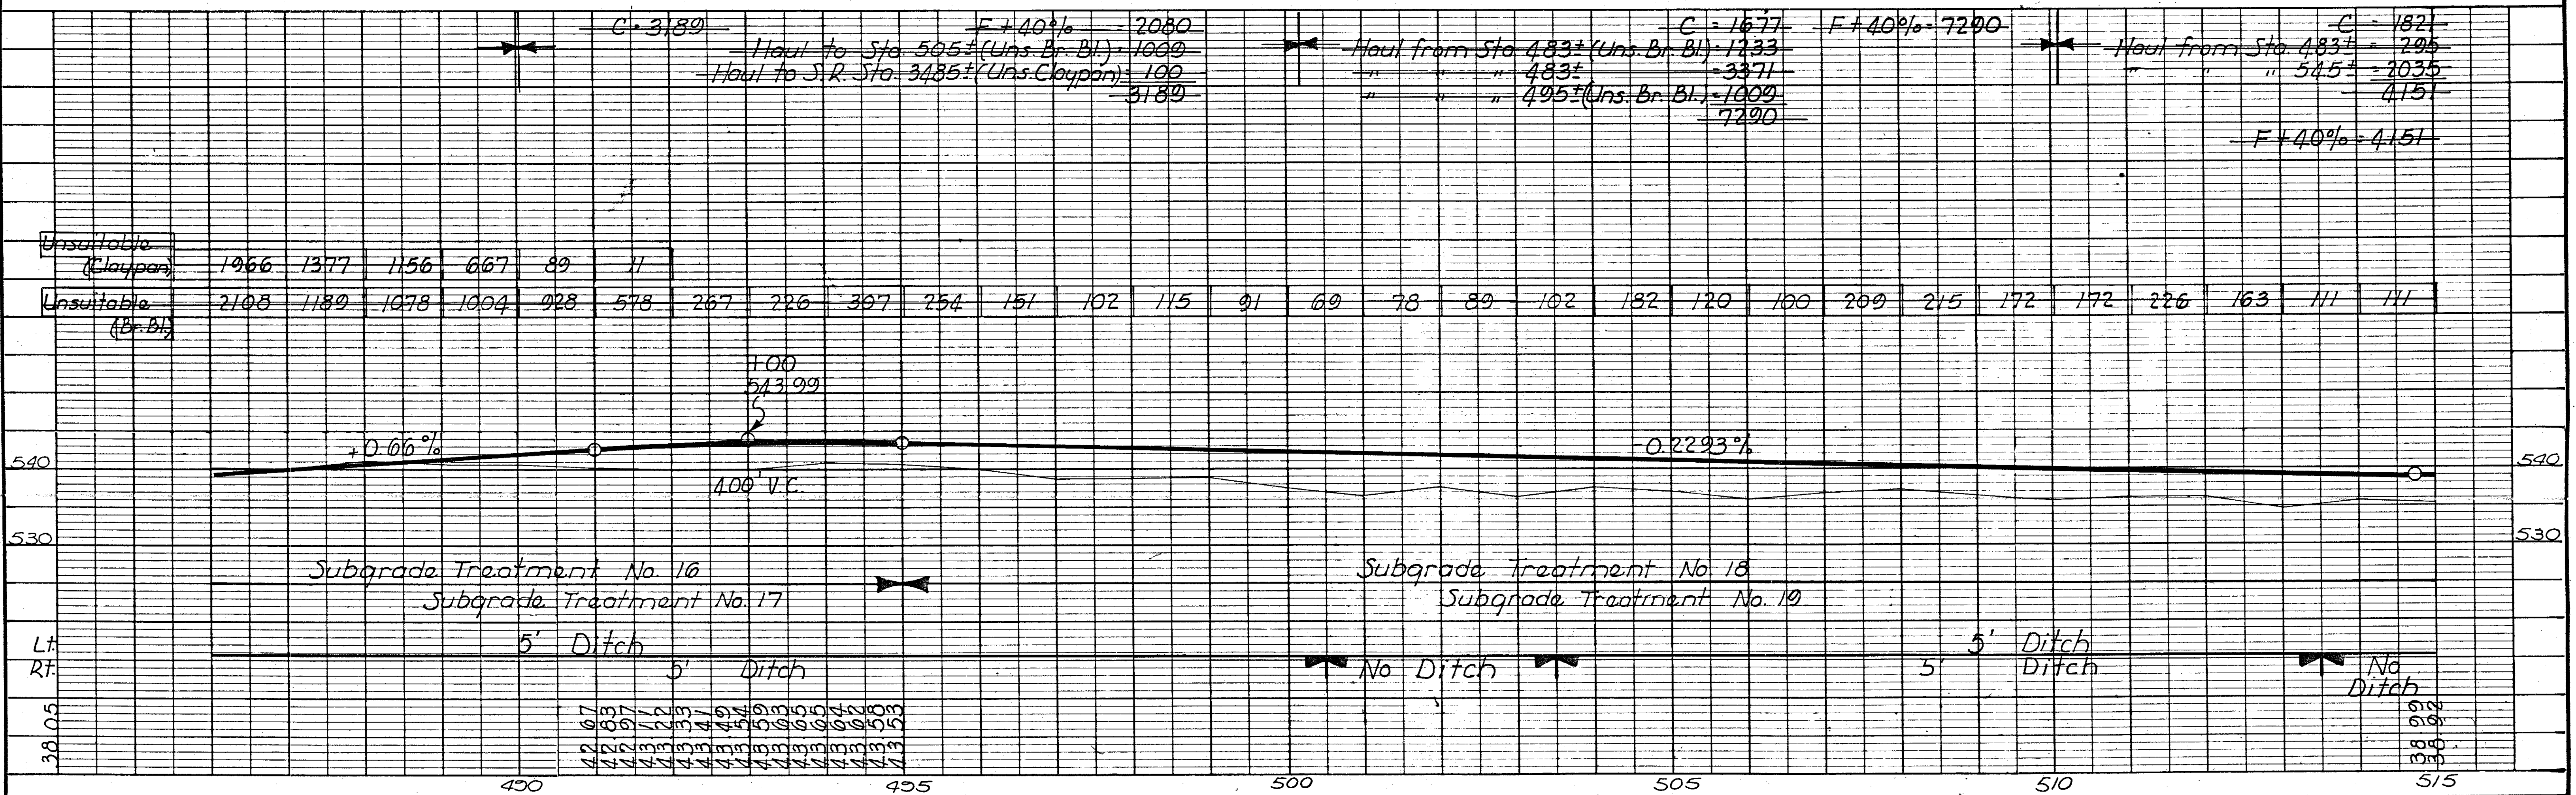 C = 3189 F + 40% = 2080
Haul to Sta. 505± (Uns. Br. Bl.) = 1009
Haul to S.R. Sta. 3485± (Uns. Claypan) = 100
3189
C = 1677 F + 40% = 7290
Haul from Sta. 483± (Uns. Br. Bl.) = 1233
" " " 483± = 3371
" " " 495± (Uns. Br. Bl.) = 1009
7290
C = 1821
Haul from Sta. 483± = 295
" " " 545± = 2035
4151
F + 40% = 4151
Unsuitable
(Claypan) 1966 1377 1156 667 89 11
Unsuitable 2108 1189 1078 1004 928 578 267 226 307 254 151 102 115 91 69 78 89 102 182 120 100 209 215 172 172 226 163 111 111
(Br. Bl.)
+00
543.99
+0.66%
-0.2293%
540
540
400' V.C.
530
530
Subgrade Treatment No. 16
Subgrade Treatment No. 17
Subgrade Treatment No. 18
Subgrade Treatment No. 19
Lt. 5' Ditch 5' Ditch
Rt. 5' Ditch No Ditch 5' Ditch No
Ditch
38.05
42.67
42.83
42.97
43.11
43.22
43.33
43.41
43.49
43.54
43.59
43.63
43.65
43.65
43.64
43.62
43.58
43.53
38.99
38.92
490 495 500 505 510 515